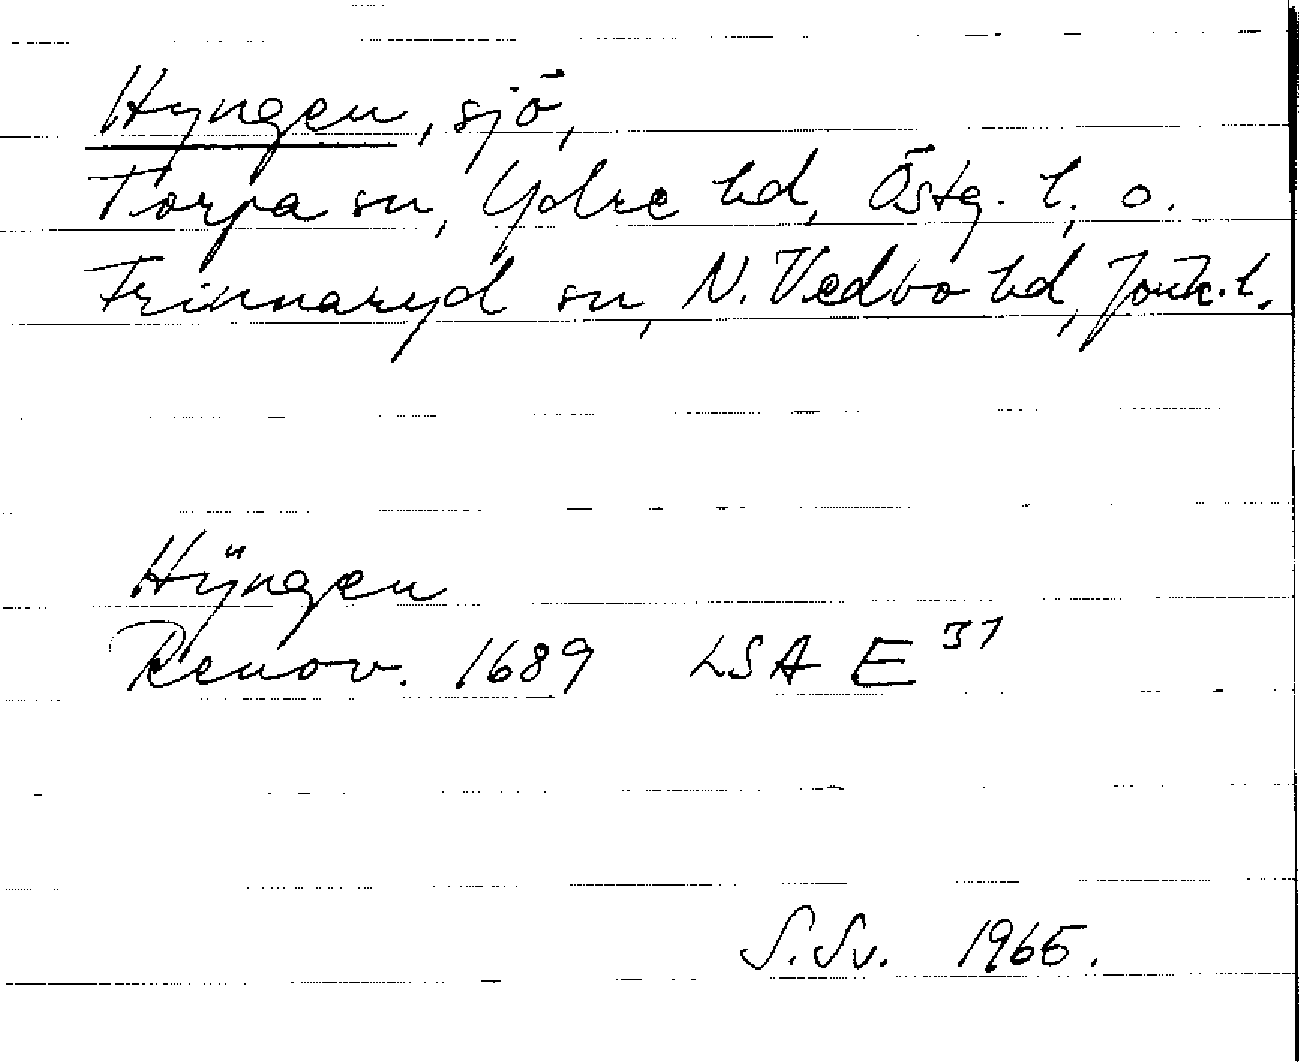 Hyngen, sjö,
Torpa sn, Ydre hd, Östg. l, o.
Frinnaryd sn, N. Vedbo hd, Jönk. l.
Hÿngen
Renov. 1689 LSA E 31
S. Sv. 1965.